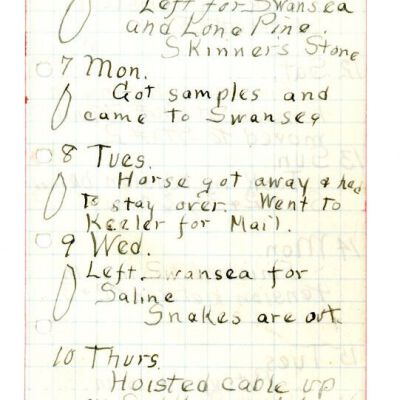 Left for Swansea
and Lone Pine.
Skinners Stone
7 Mon.
Got samples and
came to Swansea
8 Tues.
Horse got away & had
to stay over. Went to
Keeler for Mail.
9 Wed.
Left Swansea for
Saline
Snakes are out.
10 Thurs.
Hoisted cable up